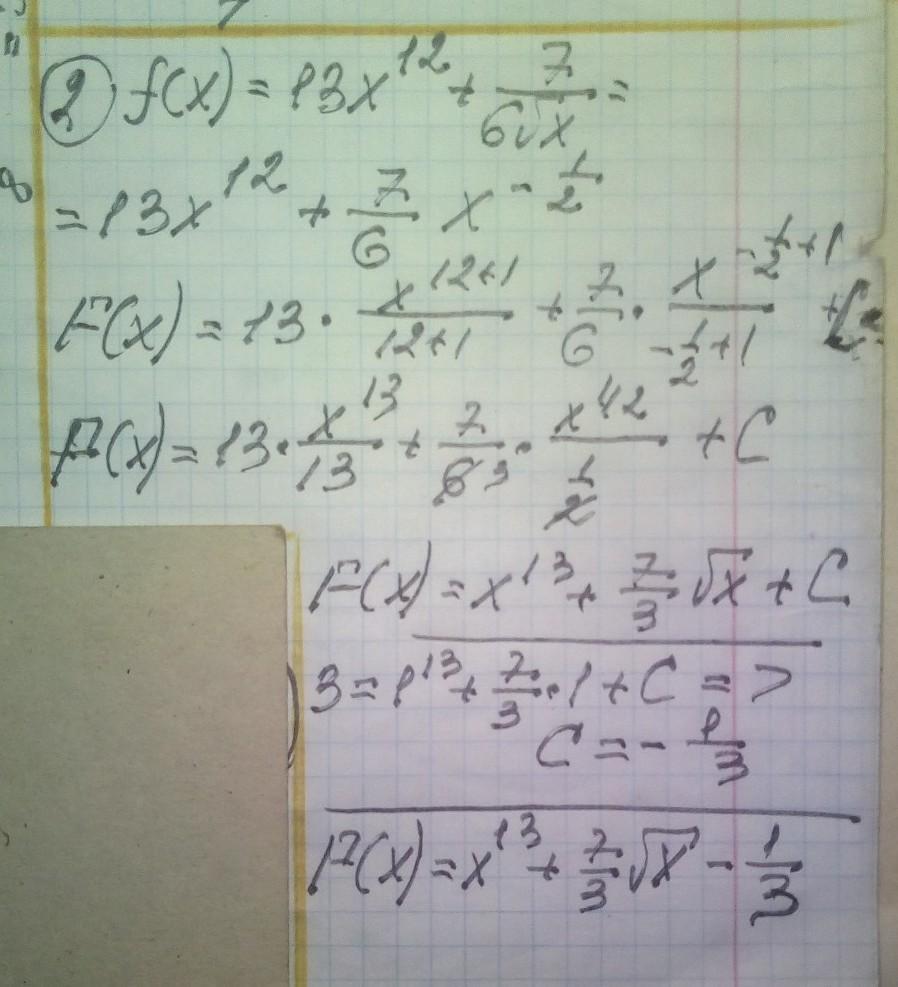 ② f(x) = 13x^12 + 7/(6√x) =
= 13x^12 + 7/6 x^(-1/2)
F(x) = 13 · x^(12+1)/(12+1) + 7/6 · x^(-1/2+1)/(-1/2+1)
F(x) = 13 · x^13/13 + 7/63 · x^(1/2)/(1/2) + C
F(x) = x^13 + 7/3 √x + C
3 = 1^13 + 7/3 · 1 + C =>
C = - 1/3
F(x) = x^13 + 7/3 √x - 1/3